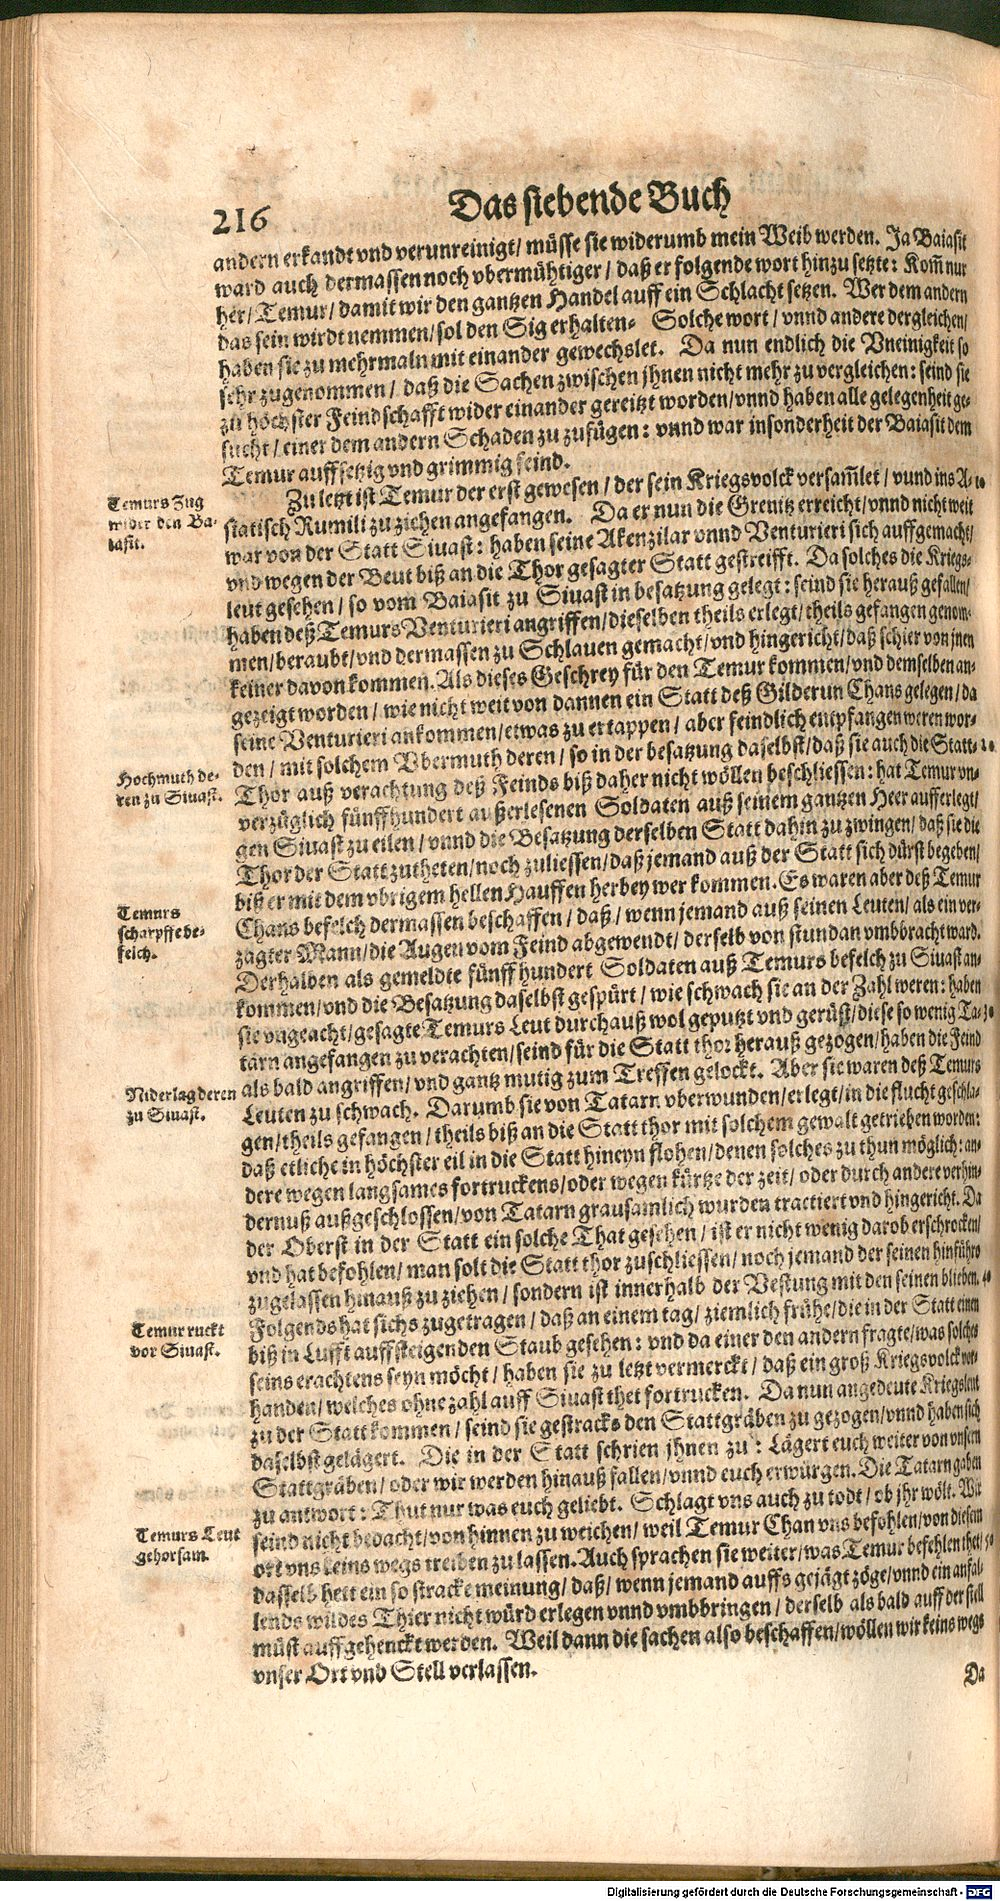 216
Das siebende Buch
andern erkandt vnd verunreinigt/ müsse sie widerumb mein Weib werden. Ja Baiasit
ward auch dermassen noch vbermühtiger/ daß er folgende wort hinzu setzte: Kom̃ nur
her/ Temur/ damit wir den gantzen Handel auff ein Schlacht setzen. Wer dem andern
das sein wirdt nemmen/ sol den Sig erhalten. Solche wort/ vnnd andere dergleichen/
haben sie zu mehrmaln mit einander gewechslet. Da nun endlich die Vneinigkeit so
sehr zugenommen/ daß die Sachen zwischen jhnen nicht mehr zu vergleichen: seind sie
zu höchster Feindschafft wider einander gereitzt worden/ vnnd haben alle gelegenheit ge-
sucht/ einer dem andern Schaden zu zufügen: vnnd war insonderheit der Baiasit dem
Temur auffsetzig vnd grimmig feind.
Temurs Zug
wider den Ba-
iasit.
Zu letzt ist Temur der erst gewesen/ der sein Kriegsvolck versam̃let/ vnnd ins A- 10
siatisch Rumili zu ziehen angefangen. Da er nun die Grenitz erreicht/ vnnd nicht weit
war von der Statt Siuast: haben seine Akenzilar vnnd Venturieri sich auffgemacht/
vnd wegen der Beut biß an die Thor gesagter Statt gestreifft. Da solches die Kriegs-
leut gesehen/ so vom Baiasit zu Siuast in besatzung gelegt: seind sie herauß gefallen/
haben deß Temurs Venturieri angriffen/ dieselben theils erlegt/ theils gefangen genom-
men/ beraubt/ vnd dermassen zu Schlauen gemacht/ vnd hingericht/ daß schier von jnen
keiner davon kommen. Als dieses Geschrey für den Temur kommen/ vnd demselben an-
gezeigt worden/ wie nicht weit von dannen ein Statt deß Gilderun Chans gelegen/ da
seine Venturieri ankommen/ etwas zu ertappen/ aber feindlich entpfangen weren wor-
den/ mit solchem Vbermuth deren/ so in der besatzung daselbst/ daß sie auch die Statt- 20
Hochmuth de-
ren zu Siuast.
Thor auß verachtung deß Feinds biß daher nicht wöllen beschliessen: hat Temur vn-
verzüglich fünffhundert außerlesenen Soldaten auß seinem gantzen Heer aufferlegt/
gen Siuast zu eilen/ vnnd die Besatzung derselben Statt dahin zu zwingen/ daß sie die
Thor der Statt zutheten/ noch zuliessen/ daß jemand auß der Statt sich dürst begeben/
biß er mit dem vbrigem hellen Hauffen herbey wer kommen. Es waren aber deß Temur
Temurs
scharpffe be-
felch.
Chans befelch dermassen beschaffen/ daß/ wenn jemand auß seinen Leuten/ als ein ver-
zagter Mann/ die Augen vom Feind abgewendt/ derselb von stundan vmbbracht ward.
Derhalben als gemeldte fünffhundert Soldaten auß Temurs befelch zu Siuast an-
kommen/ vnd die Besatzung daselbst gespürt/ wie schwach sie an der Zahl weren: haben
sie vngeacht/ gesagte Temurs Leut durchauß wol geputzt vnd gerüst/ diese so wenig Ta- 30
tarn angefangen zu verachten/ seind für die Statt thor herauß gezogen/ haben die Feind
Niderlag deren
zu Siuast.
als bald angriffen/ vnd gantz mutig zum Treffen gelockt. Aber sie waren deß Temurs
Leuten zu schwach. Darumb sie von Tatarn vberwunden/ erlegt/ in die flucht geschla-
gen/ theils gefangen/ theils biß an die Statt thor mit solchem gewalt getrieben worden:
daß etliche in höchster eil in die Statt hineyn flohen/ denen solches zu thun möglich: an-
dere wegen langsames fortruckens/ oder wegen kürtze der zeit/ oder durch andere verhin-
dernuß außgeschlossen/ von Tatarn grausamlich wurden tractiert vnd hingericht. Da
der Oberst in der Statt ein solche That gesehen/ ist er nicht wenig darob erschrocken/
vnd hat befohlen/ man solt die Statt thor zuschliessen/ noch jemand der seinen hinführo
zugelassen hinauß zu ziehen/ sondern ist innerhalb der Vestung mit den seinen blieben. 40
Temur ruckt
vor Siuast.
Folgends hat sichs zugetragen/ daß an einem tag/ ziemlich frühe/ die in der Statt einen
biß in Lufft auffsteigenden Staub gesehen: vnd da einer den andern fragte/ was solchs
seins erachtens seyn möcht/ haben sie zu letzt vermerckt/ daß ein groß Kriegsvolck vor-
handen/ welches ohne zahl auff Siuast thet fortrucken. Da nun angedeute Kriegsleut
zu der Statt kommen/ seind sie gestracks den Stattgräben zu gezogen/ vnnd haben sich
daselbst gelägert. Die in der Statt schrien jhnen zu: Lägert euch weiter von vnsern
Stattgräben/ oder wir werden hinauß fallen/ vnnd euch erwürgen. Die Tatarn gaben
zu antwort: Thut nur was euch geliebt. Schlagt vns auch zu todt/ ob jhr wölt. Wir
Temurs Leut
gehorsam.
seind nicht bedacht/ von hinnen zu weichen/ weil Temur Chan vns befohlen/ von diesem
ort vns keins wegs treiben zu lassen. Auch sprachen sie weiter/ was Temur befehlen thet/ 50
dasselb hett ein so stracke meinung/ daß/ wenn jemand auffs gejägt zöge/ vnnd ein anfal-
lends wildes Thier nicht würd erlegen vnnd vmbbringen/ derselb als bald auff der stell
müst auffgehenckt werden. Weil dann die sachen also beschaffen/ wöllen wir keins wegs
vnser Ort vnd Stell verlassen.
Da
Digitalisierung gefördert durch die Deutsche Forschungsgemeinschaft - DFG